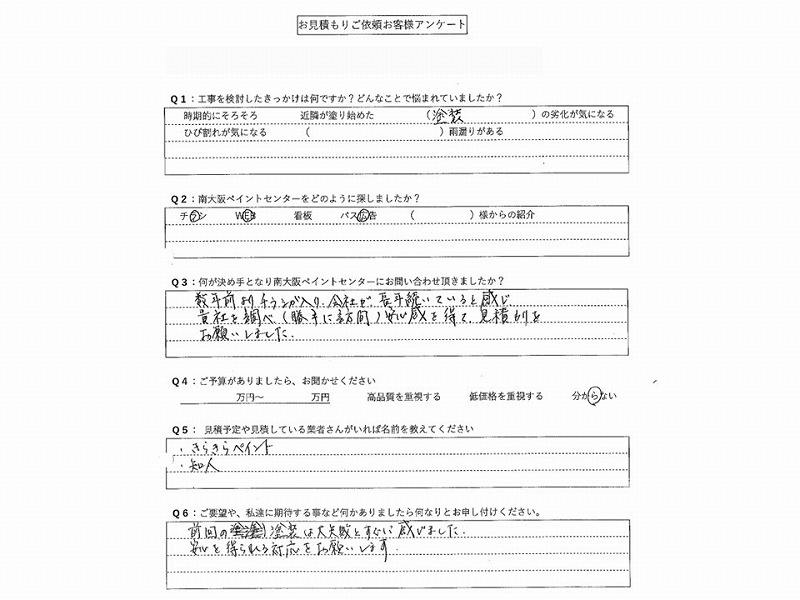 お見積もりご依頼お客様アンケート
Q1：工事を検討したきっかけは何ですか？どんなことで悩まれていましたか？
時期的にそろそろ 近隣が塗り始めた （塗装 ）の劣化が気になる
ひび割れが気になる （ ）雨漏りがある
Q2：南大阪ペイントセンターをどのように探しましたか？
チラシ WEB 看板 バス広告 （ ）様からの紹介
Q3：何が決め手となり南大阪ペイントセンターにお問い合わせ頂きましたか？
数年前よりチラシが入り、会社が長年続いていると感じ
貴社を調べ（勝手に訪問）安心感を得て、見積りを
お願いしました.
Q4：ご予算がありましたら、お聞かせください
万円～ 万円 高品質を重視する 低価格を重視する 分からない
Q5： 見積予定や見積している業者さんがいれば名前を教えてください
・きらきらペイント
・知人
Q6：ご要望や、私達に期待する事など何かありましたら何なりとお申し付けください。
前回の塗装は大失敗とすぐに感じました.
安心を得られる対応をお願いします.